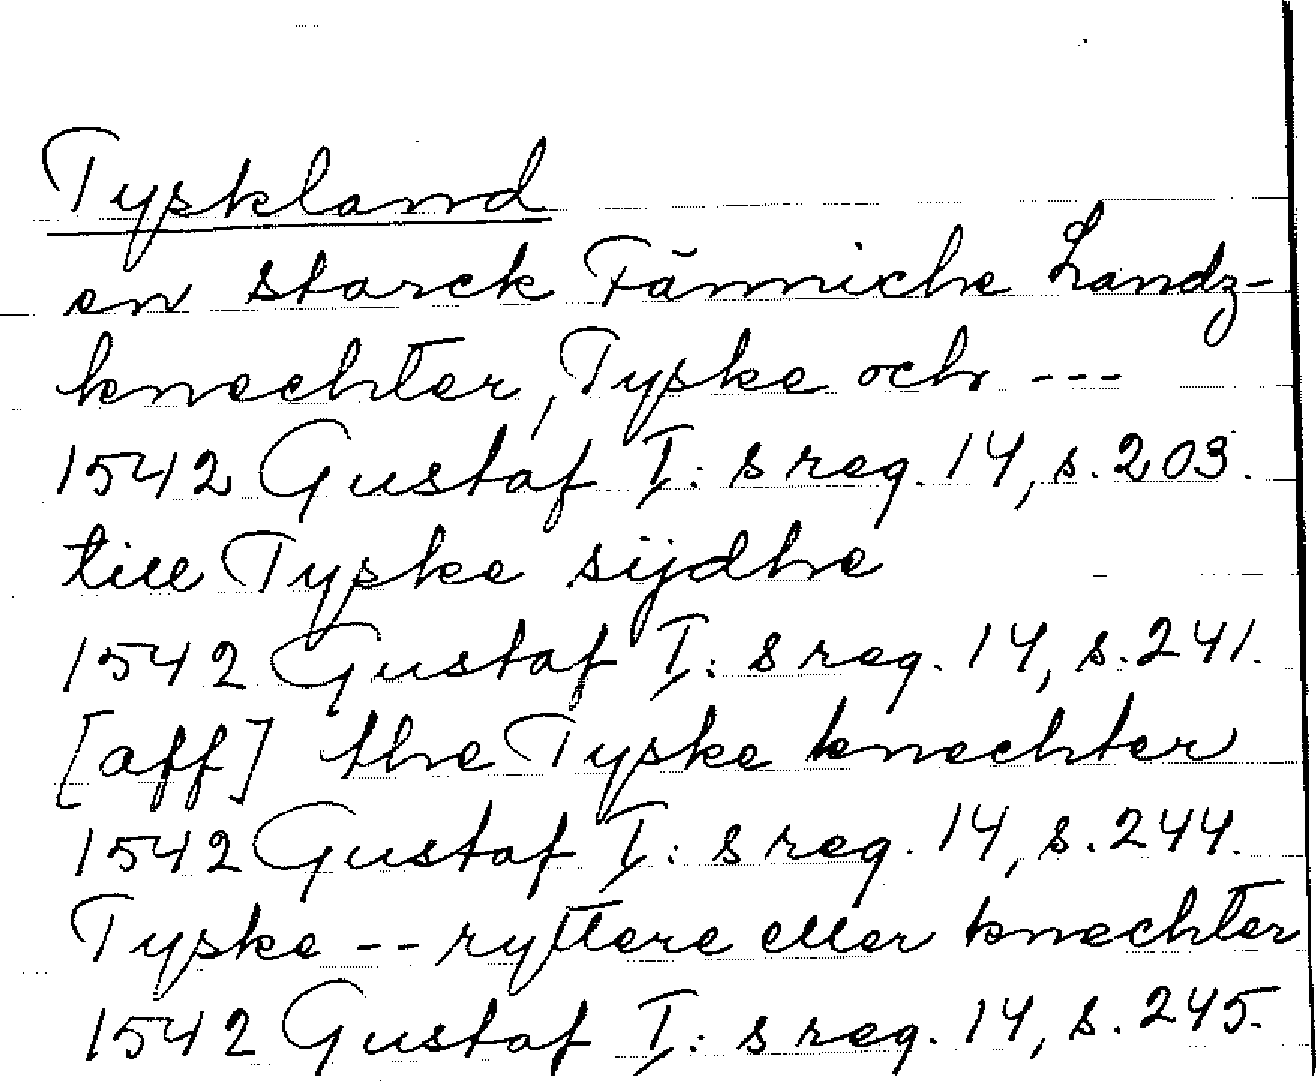 Tyskland
en starck Fänniche Landz-
knechter, Tyske och ---
1542 Gustaf I:s reg. 14, s. 203.
till Tyske sijdhe
1542 Gustaf I:s reg. 14, s. 241.
[aff] the Tyske knechter
1542 Gustaf I:s reg. 14, s. 244.
Tyske -- ryttere eller knechter
1542 Gustaf I:s reg. 14, s. 245.